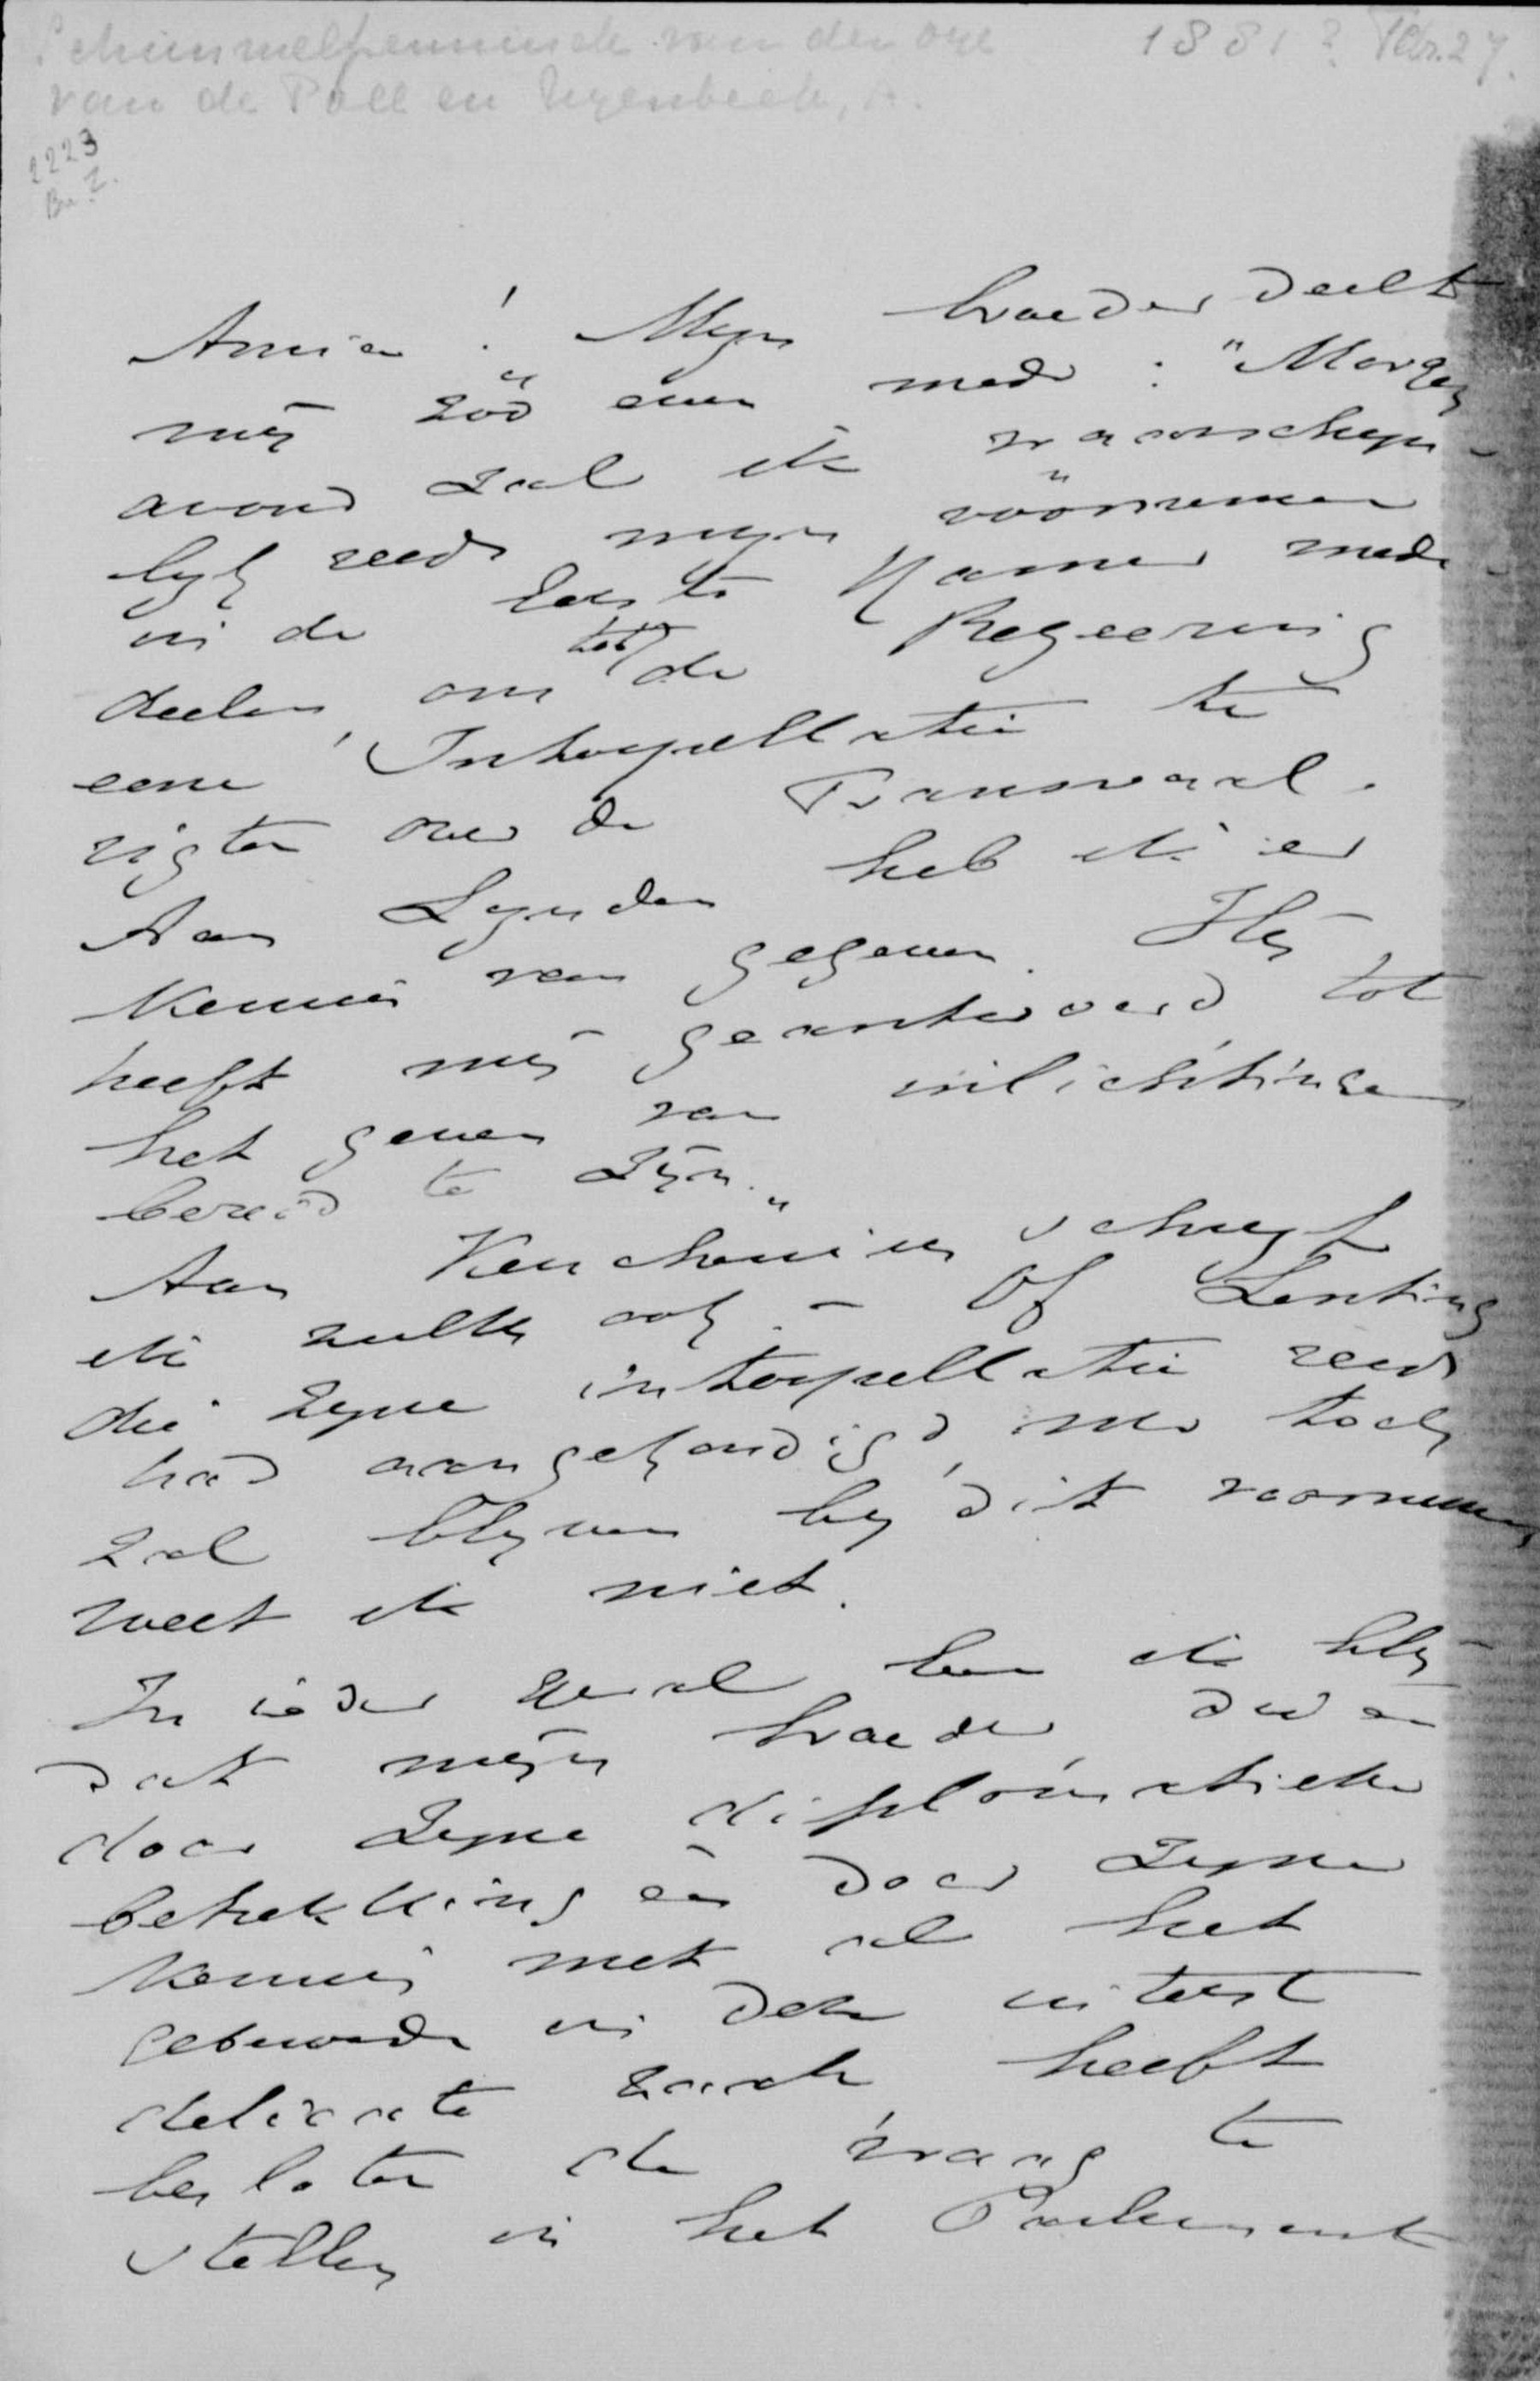 Schimmelpenninck van der Oye 1881? Febr. 27.
van de Poll en Nyenbeek, A.
2223
Br. 1.
Amice! Mijn broeder deelt
mij zoo even mede: "Morgen
avond zal ik waarschyn-
lyk reeds myn voornemen
in de Eerste Kamer mede-
deelen, om tot de Regeering
eene Interpellatie te
rigten over de Transvaal.
Aan Lynden heb ik er
kennis van gegeven. Hij
heeft mij geantwoord tot
het geven van inlichtingen
bereid te zijn."
Aan Keuchenius schryf
ik zulks ook. - Of Lenting
die zyne interpellatie reeds
had aangekondigd, nu toch
zal blyven by dit voornemen
weet ik niet.
In ieder geval ben ik bly
dat mijn broeder die en
door zyne diplomatieke
betrekking en door zyne
kennis met al het
gebeurde in deze uiterst
delicate zaak heeft
besloten de vraag te
stellen in het Parlement